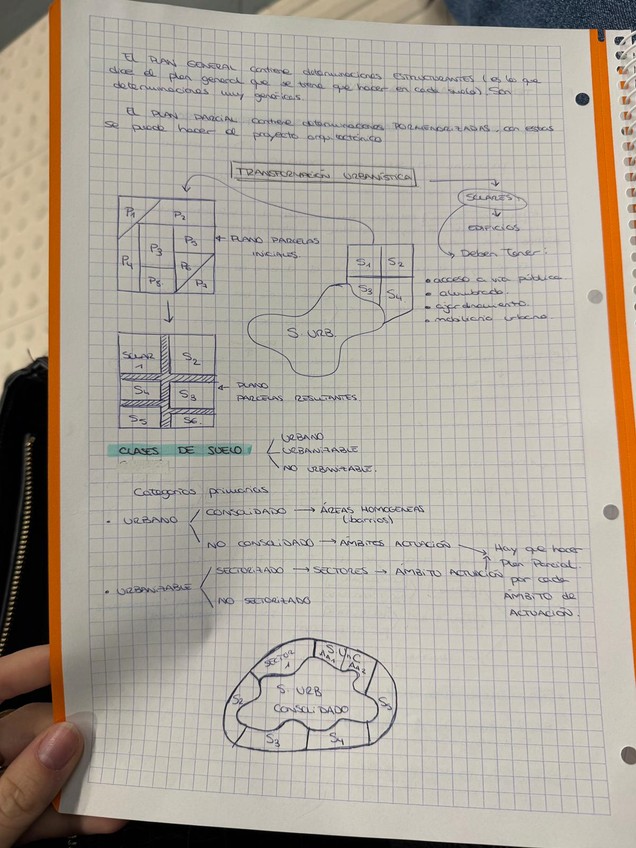 EL PLAN GENERAL contiene determinaciones ESTRUCTURANTES (es lo que
dice el plan general que se tiene que hacer en cada suelo). Son
determinaciones muy genéricas.
EL PLAN PARCIAL contiene determinaciones PORMENORIZADAS, con estas
se puede hacer el proyecto arquitectónico
TRANSFORMACIÓN URBANÍSTICA
SOLARES
EDIFICIOS
Deben Tener:
• acceso a vía pública
• alumbrado.
• ajardinamiento.
• mobiliario urbano.
P1 P2
P3 P5
P4 P6
P8 P7
← PLANO PARCELAS
INICIALES
S1 S2
S3 S4
S. URB.
SOLAR
1
S2
S4 S3
S5 S6.
← PLANO
PARCELAS RESULTANTES
CLASES DE SUELO
URBANO
URBANIZABLE
NO URBANIZABLE.
Categorías primarias
• URBANO
CONSOLIDADO → ÁREAS HOMOGENEAS
(barrios)
NO CONSOLIDADO → ÁMBITES ACTUACIÓN
• URBANIZABLE
SECTORIZADO → SECTORES → ÁMBITO ACTUACIÓN
NO SECTORIZADO
Hay que hacer
Plan Parcial
por cada
ÁMBITO de
ACTUACIÓN.
SECTOR
1
S.UnC
AA1 AA2
S2
S. URB
CONSOLIDADO
S5
S3
S4